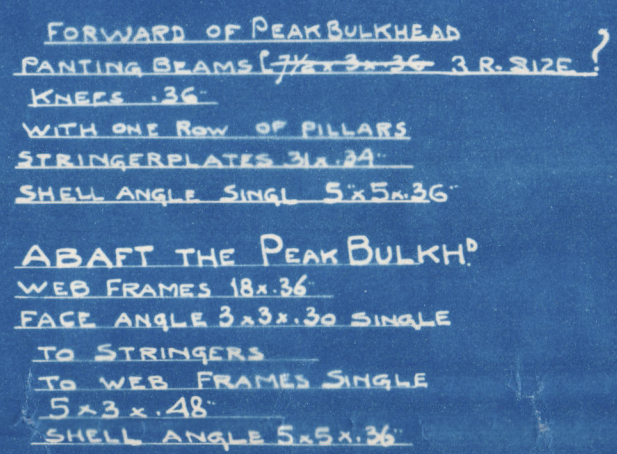 FORWARD OF PEAK BULKHEAD
PANTING BEAMS [ 7½ x 3 x .36 3 R. SIZE ?
KNEES .36"
WITH ONE ROW OF PILLARS
STRINGERPLATES 31 x .34"
SHELL ANGLE SINGL 5" x 5 x .36"
ABAFT THE PEAK BULKHD.
WEB FRAMES 18 x .36"
FACE ANGLE 3 x 3 x .30 SINGLE
TO STRINGERS
TO WEB FRAMES SINGLE
5 x 3 x .48"
SHELL ANGLE 5 x 5 x .36"